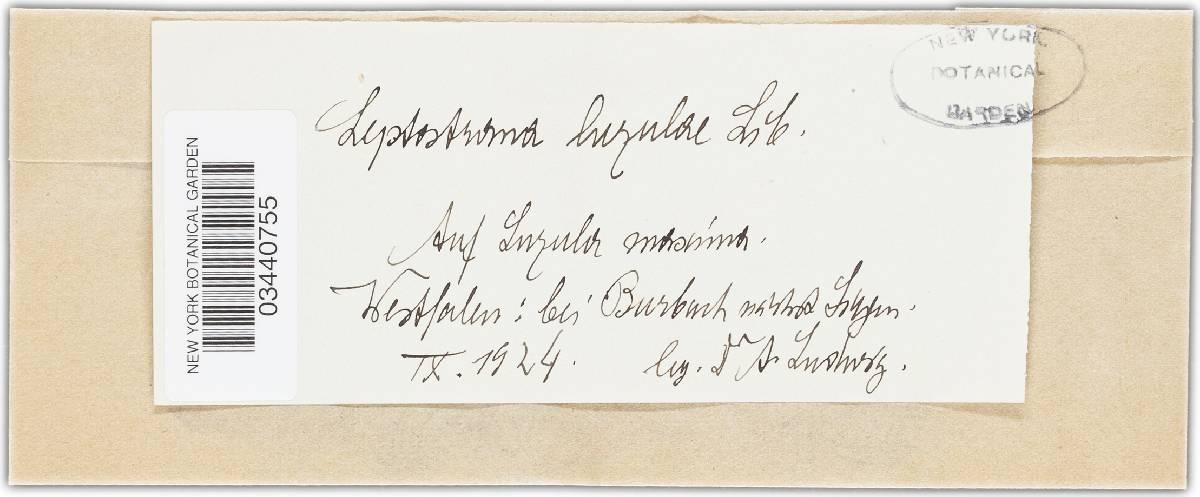 NEW YORK
BOTANICAL
GARDEN
Leptostroma luzulae Lib.
Auf Luzula maxima.
Westfalen: bei Burbach nächst Siegen.
IX. 1924. leg. Dr A. Ludwig.
NEW YORK BOTANICAL GARDEN
03440755